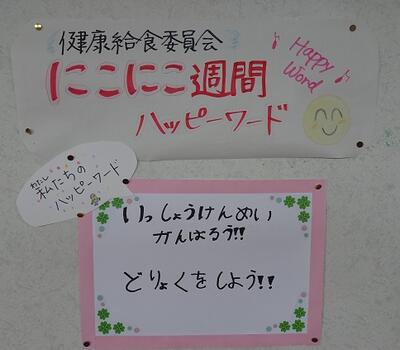 健康給食委員会
にこにこ週間
ハッピーワード
♪ Happy Word ♪
わたし
私たちの
ハッピーワード
いっしょうけんめい
がんばろう!!
どりょくをしよう!!